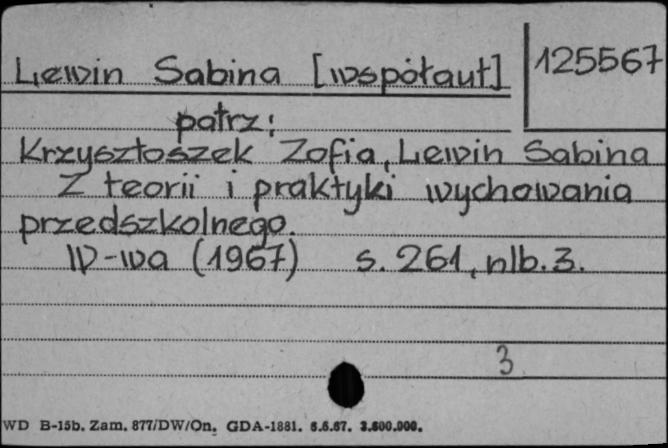 Lewin Sabina [współaut]
125567
patrz:
Krzysztoszek Zofia, Lewin Sabina
Z teorii i praktyki wychowania
przedszkolnego.
W-wa (1967) s. 261, nlb. 3.
3
WD B-15b. Zam. 877/DW/On. GDA-1881. 6.6.67. 3.600.000.